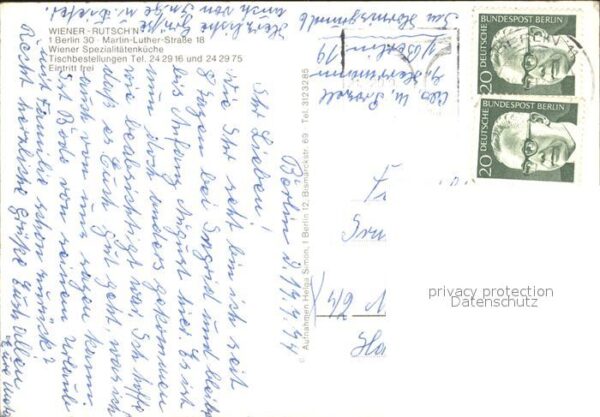 WIENER-RUTSCH'N
1 Berlin 30 · Martin-Luther-Straße 18
Wiener Spezialitätenküche
Tischbestellungen Tel. 24 29 16 und 24 29 75
Eintritt frei
Berlin d. 19.7.74
Ihr Lieben!
Wie Ihr seht bin ich seit
8 Tagen bei Ingrid und bleibe
bis Anfang August hier. Es ist
nun doch anders gekommen
wie beabsichtigt war. Ich hoffe
daß es Euch gut geht, was ich
auch von uns sagen kann.
Ist Bodo von seinem Urlaub
mit Familie schon zurück?
Recht herzliche Grüße Euch allen
Eure
Herzliche Grüße
auch von Inge u. Detlef.
© Aufnahmen Helga Simon, 1 Berlin 12, Bismarckstr. 69 Tel. 3123285
1 Berlin 19
DEUTSCHE BUNDESPOST BERLIN
20
DEUTSCHE BUNDESPOST BERLIN
20
privacy protection
Datenschutz